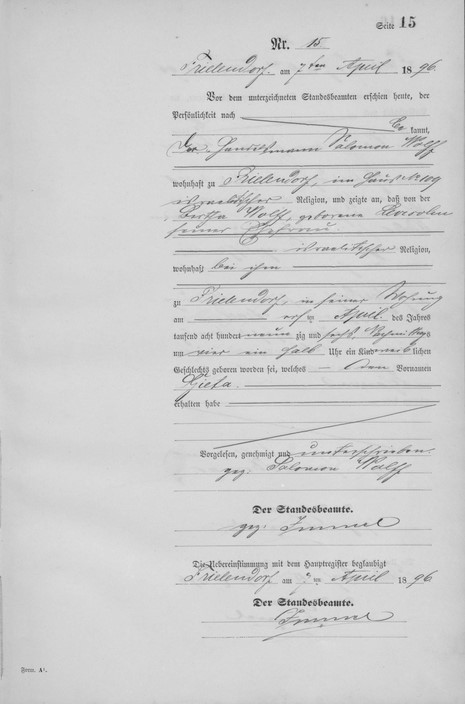 Seite 15
Nr. 15
Frielendorf am 7ten April 1896
Vor dem unterzeichneten Standesbeamten erschien heute, der
Persönlichkeit nach
be kannt,
der Handelsmann Salomon Wolff
wohnhaft zu Frielendorf, im Haus No 109
israelitischer Religion, und zeigte an, daß von der
Bertha Wolff, geborene
seiner Ehefrau
israelitischer Religion,
wohnhaft bei ihm
zu Frielendorf, in seiner Wohnung
am ersten April des Jahres
tausend acht hundert neun zig und sechs, Nachmittags
um vier ein halb Uhr ein Kind weib lichen
Geschlechts geboren worden sei, welches den Vornamen
erhalten habe
Vorgelesen, genehmigt und unterschrieben
gez. Salomon Wolff
Der Standesbeamte.
gez. Immel
Die Uebereinstimmung mit dem Hauptregister beglaubigt
Frielendorf am 7ten April 1896
Der Standesbeamte.
Immel
Form. A¹.